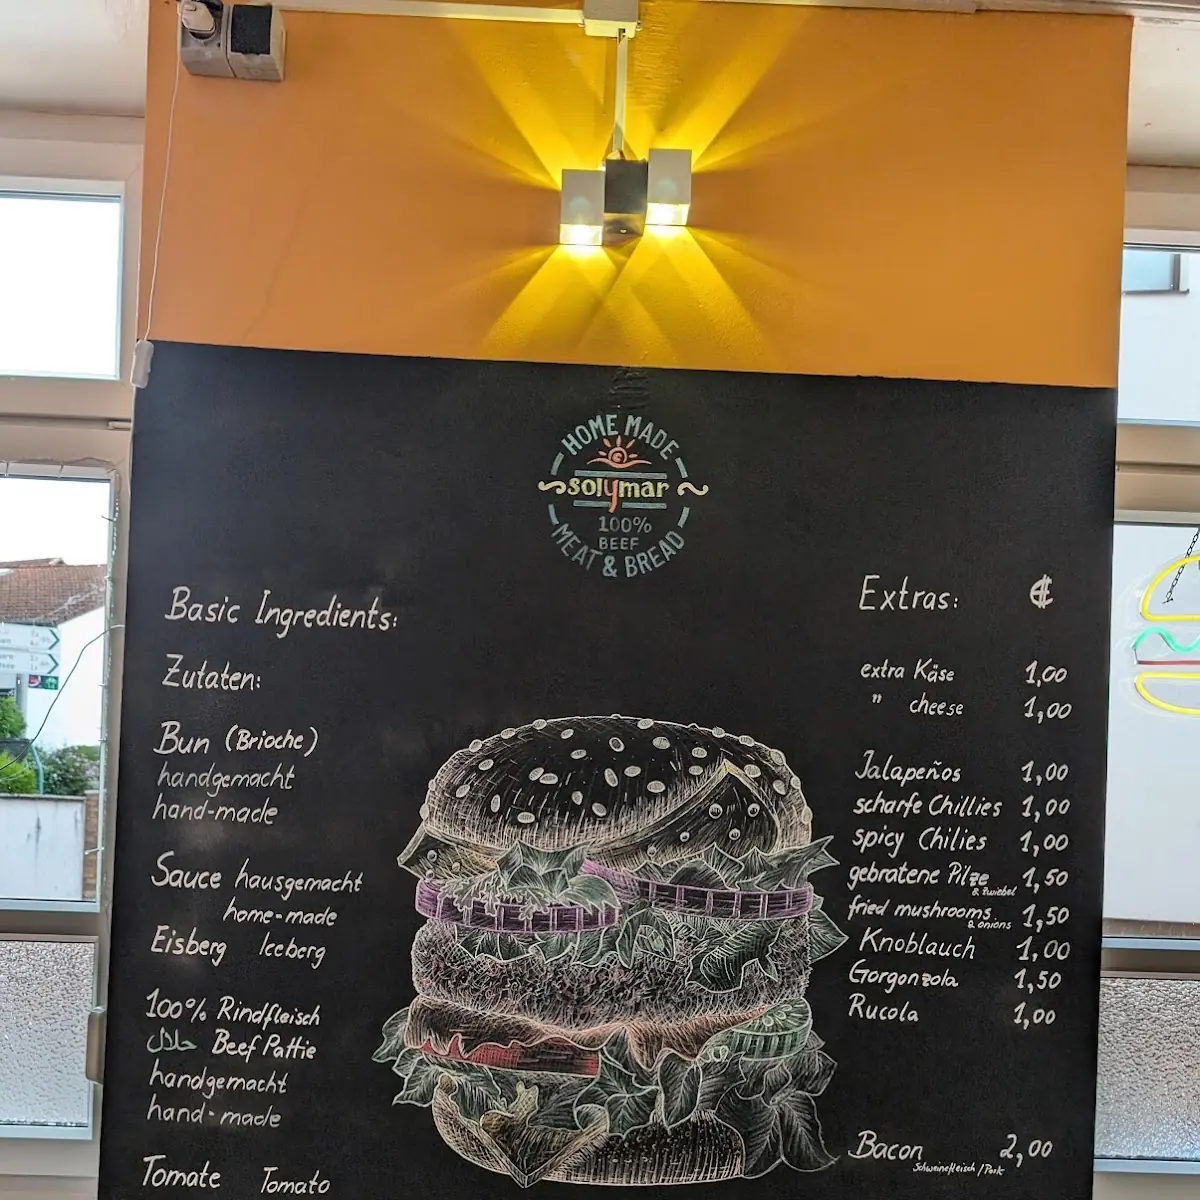 HOME MADE
solymar
100%
BEEF
MEAT & BREAD
Basic Ingredients:
Zutaten:
Bun (Brioche)
handgemacht
hand-made
Sauce hausgemacht
home-made
Eisberg Iceberg
100% Rindfleisch
حلال Beef Pattie
handgemacht
hand-made
Tomate Tomato
Extras: €
extra Käse 1,00
" cheese 1,00
Jalapeños 1,00
scharfe Chillies 1,00
spicy Chilies 1,00
gebratene Pilze 1,50
& Zwiebel
fried mushrooms 1,50
& onions
Knoblauch 1,00
Gorgonzola 1,50
Rucola 1,00
Bacon 2,00
Schweinefleisch/Pork